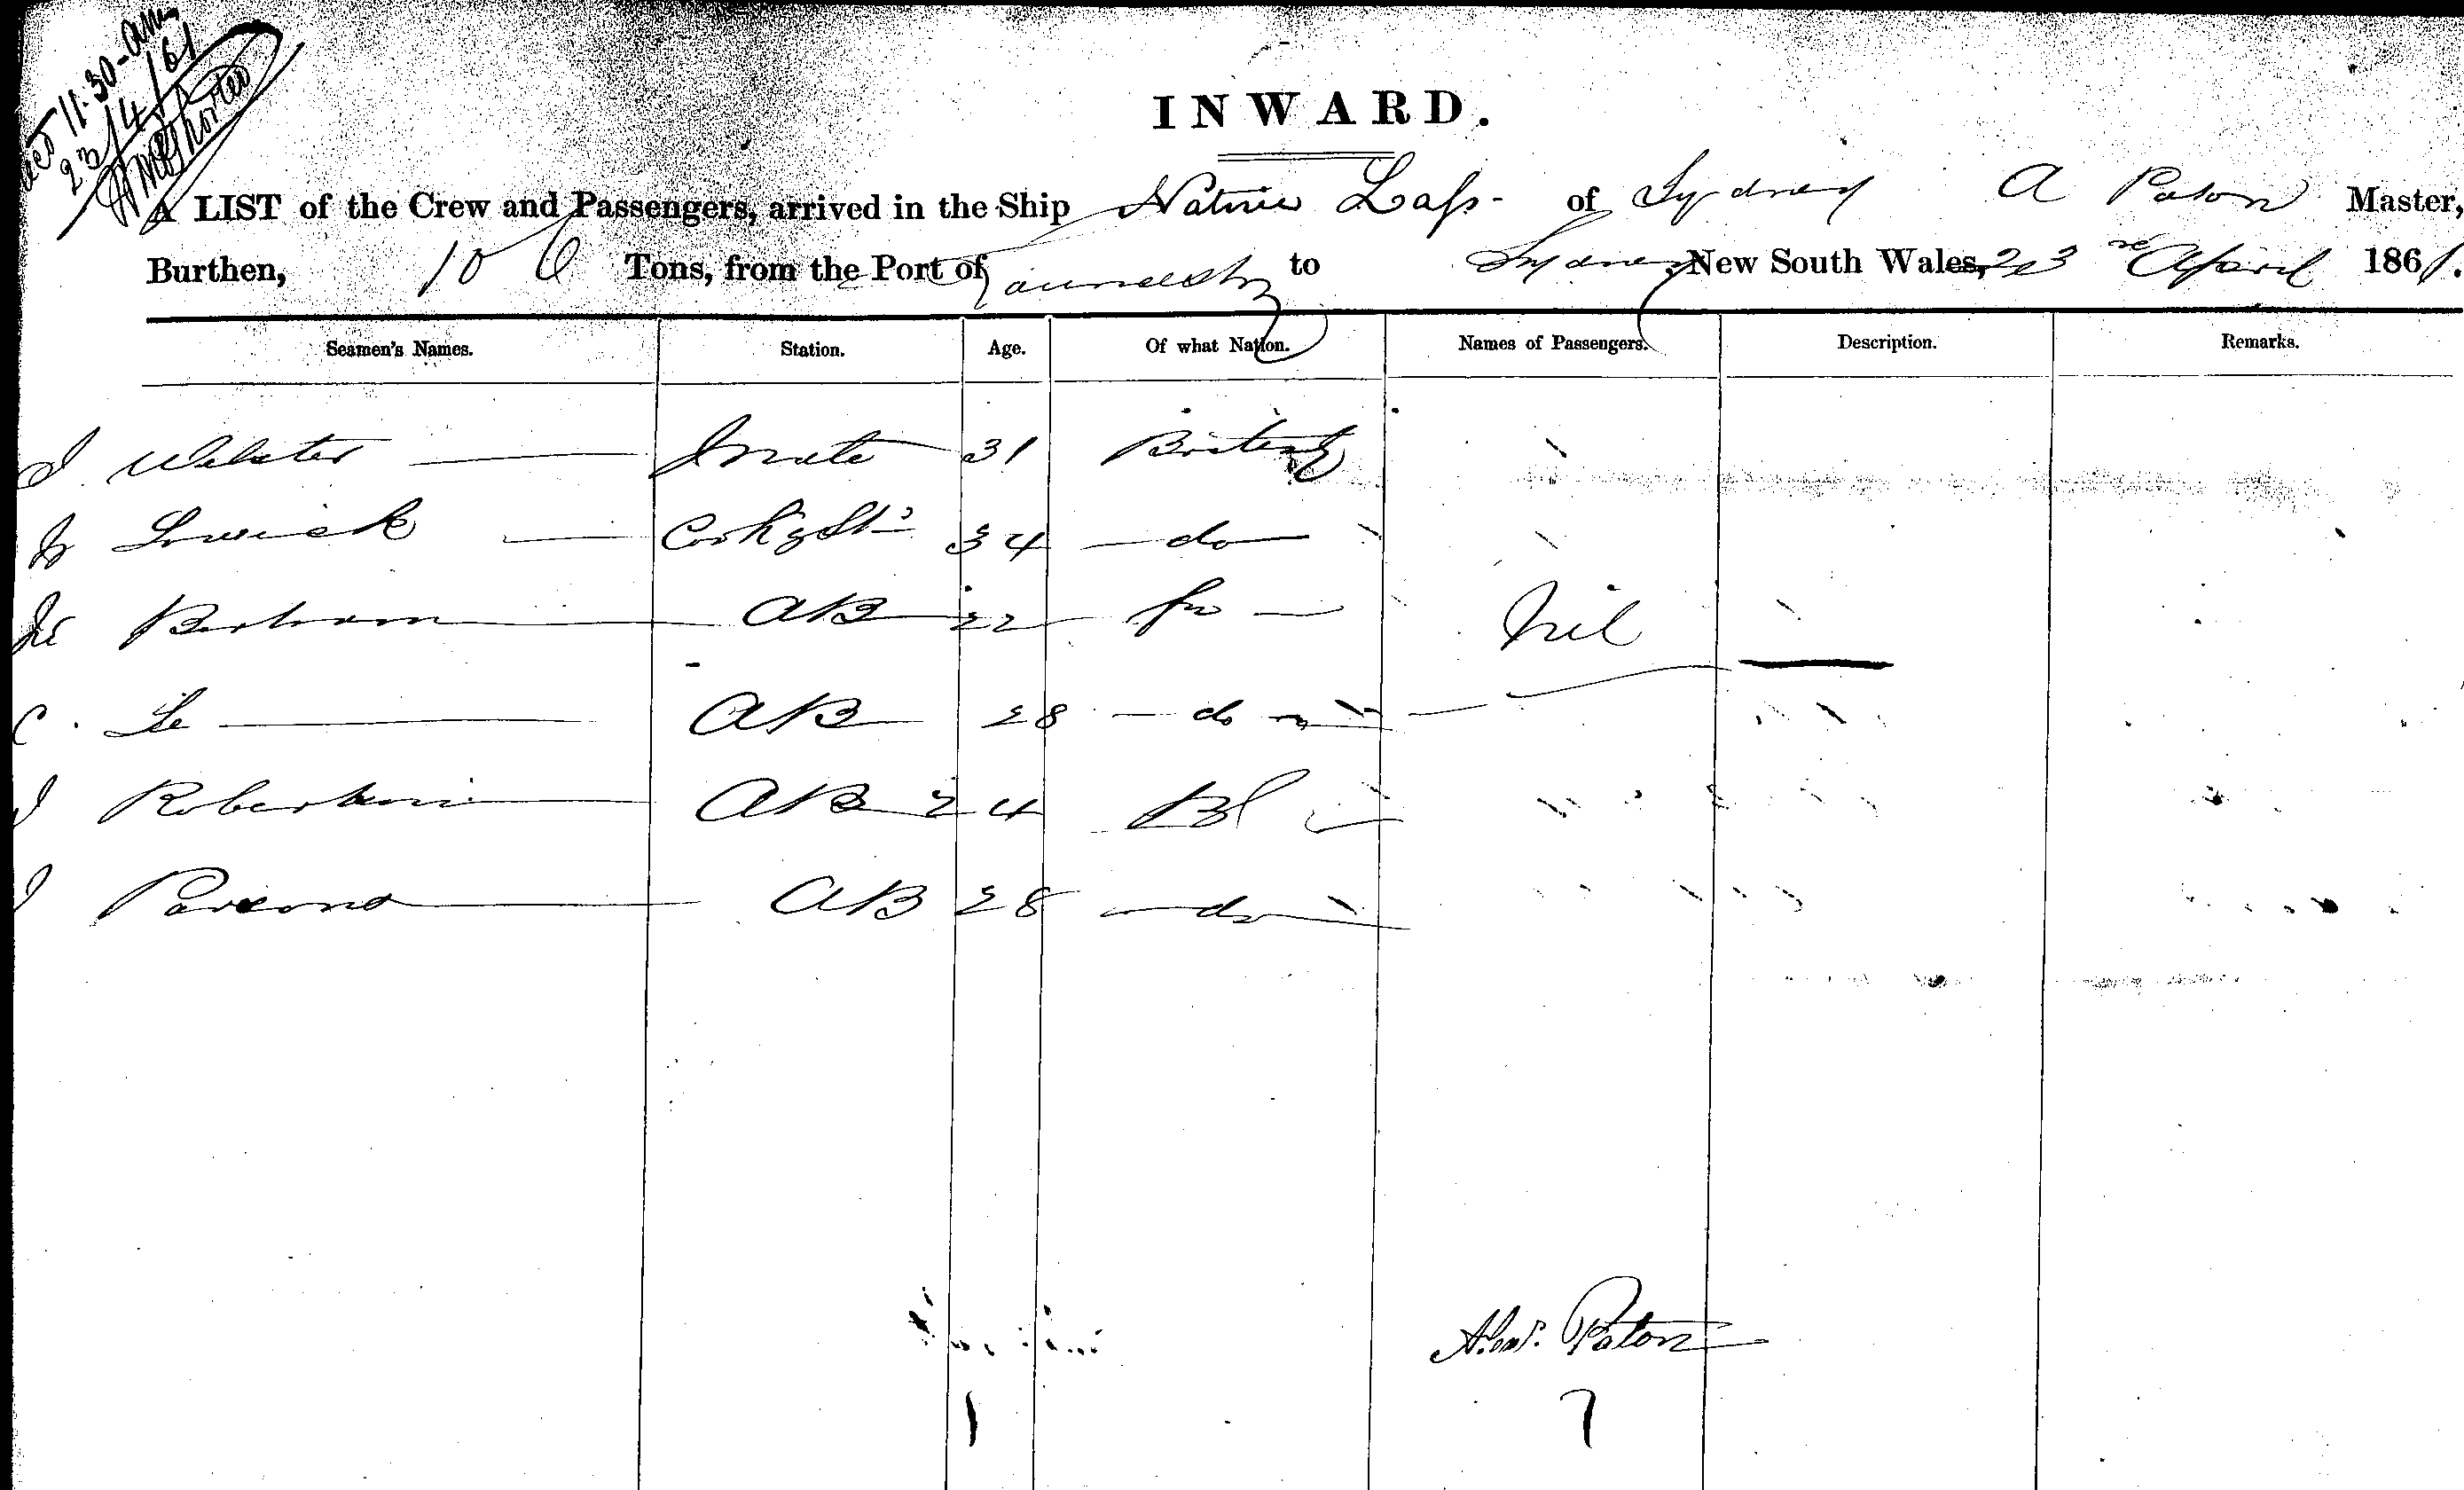 11.30 am
23/4/61
INWARD.
A LIST of the Crew and Passengers, arrived in the Ship Native Lass of Sydney A Paton Master,
Burthen, 106 Tons, from the Port of Launceston to Sydney New South Wales, 23rd April 1861.
Seamen's Names. Station. Age. Of what Nation. Names of Passengers. Description. Remarks.
J Webster Mate 31 British
Lowick Cook & St 34 do
Bertram AB 22 do Nil
C. Le AB 28 do
J Robertson AB 24 B
J Parsons AB 28 do
Alexr. Paton
7